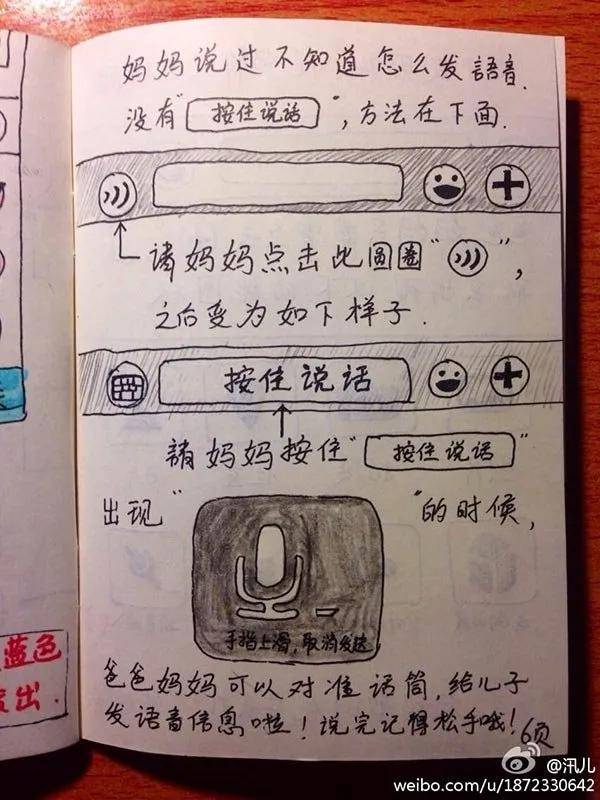 妈妈说过不知道怎么发語音.
没有"按住说话",方法在下面.
請妈妈点击此圆圈" ",
之后变为如下样子.
按住说话
請妈妈按住"按住说话"
出现" "的时候,
手指上滑,取消发送
爸爸妈妈可以对准话筒,给儿子
发语音信息啦!说完记得松手哦!
6页
蓝色
出.
@汛儿
weibo.com/u/1872330642